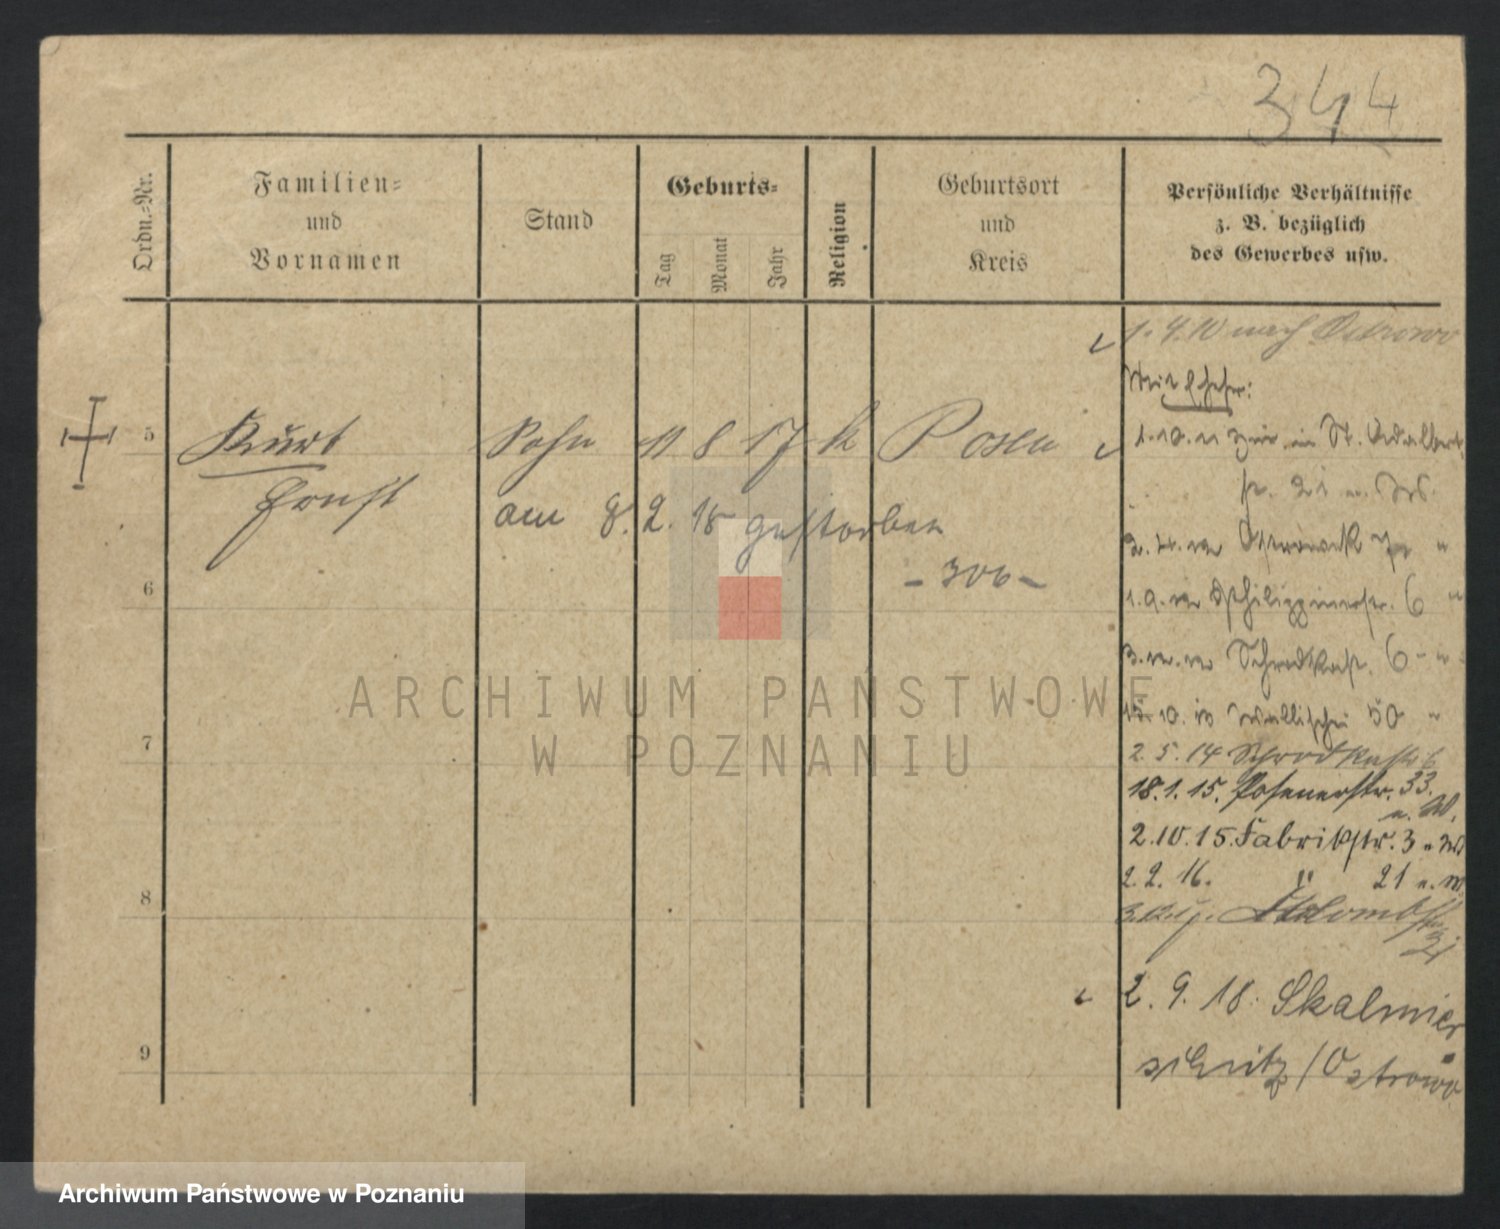 344
Ordn.-Nr.
Familien-
und
Vornamen
Stand
Geburts-
Tag
Monat
Jahr
Religion
Geburtsort
und
Kreis
Persönliche Verhältnisse
z. B. bezüglich
des Gewerbes usw.
1. 4. 10 nach Ostrowo
5 Kurt Sohn 11 8 17 k Posen
Ernst
am 8. 2. 18 gestorben
- 306 -
6
7
8
9
1. 10. 11 in St. Adalbert
str. 21
Ostrowek
1. 9. Philippinerstr. 6 "
3. Schrodkastr. 6 - "
15. 10. Wallischei 50 "
2. 5. 14 Schrodkastr. 6
18. 1. 15. Posenerstr. 33.
u. W.
2. 10. 15. Fabrikstr. 3
2. 2. 16. " 21 u. W
2. 9. 18. Skalmier
schütz / Ostrowo
ARCHIWUM PAŃSTWOWE
W POZNANIU
Archiwum Państwowe w Poznaniu